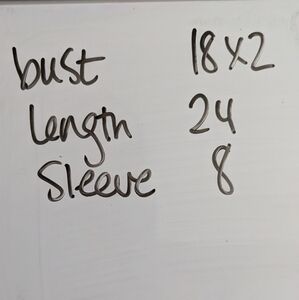 bust 18x2
Length 24
Sleeve 8